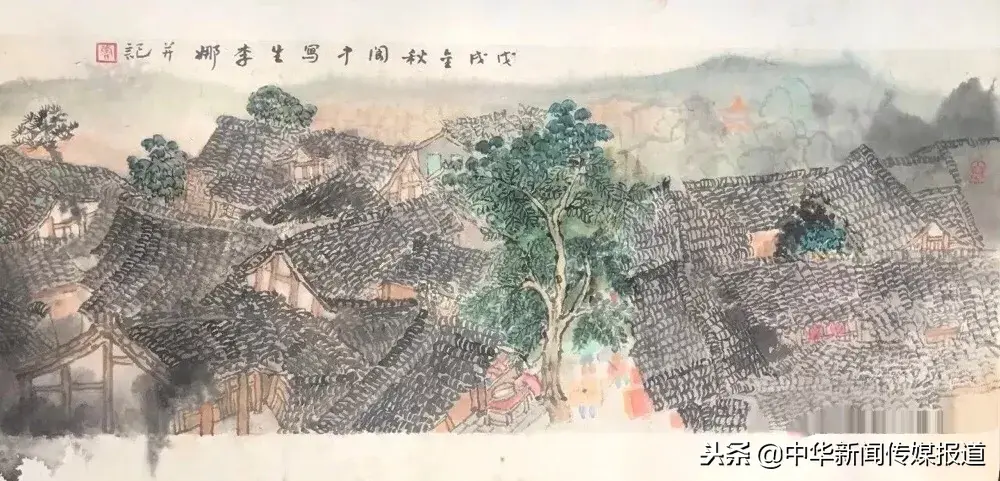 戊戌金秋阆中寫生李娜并記
头条 @中华新闻传媒报道